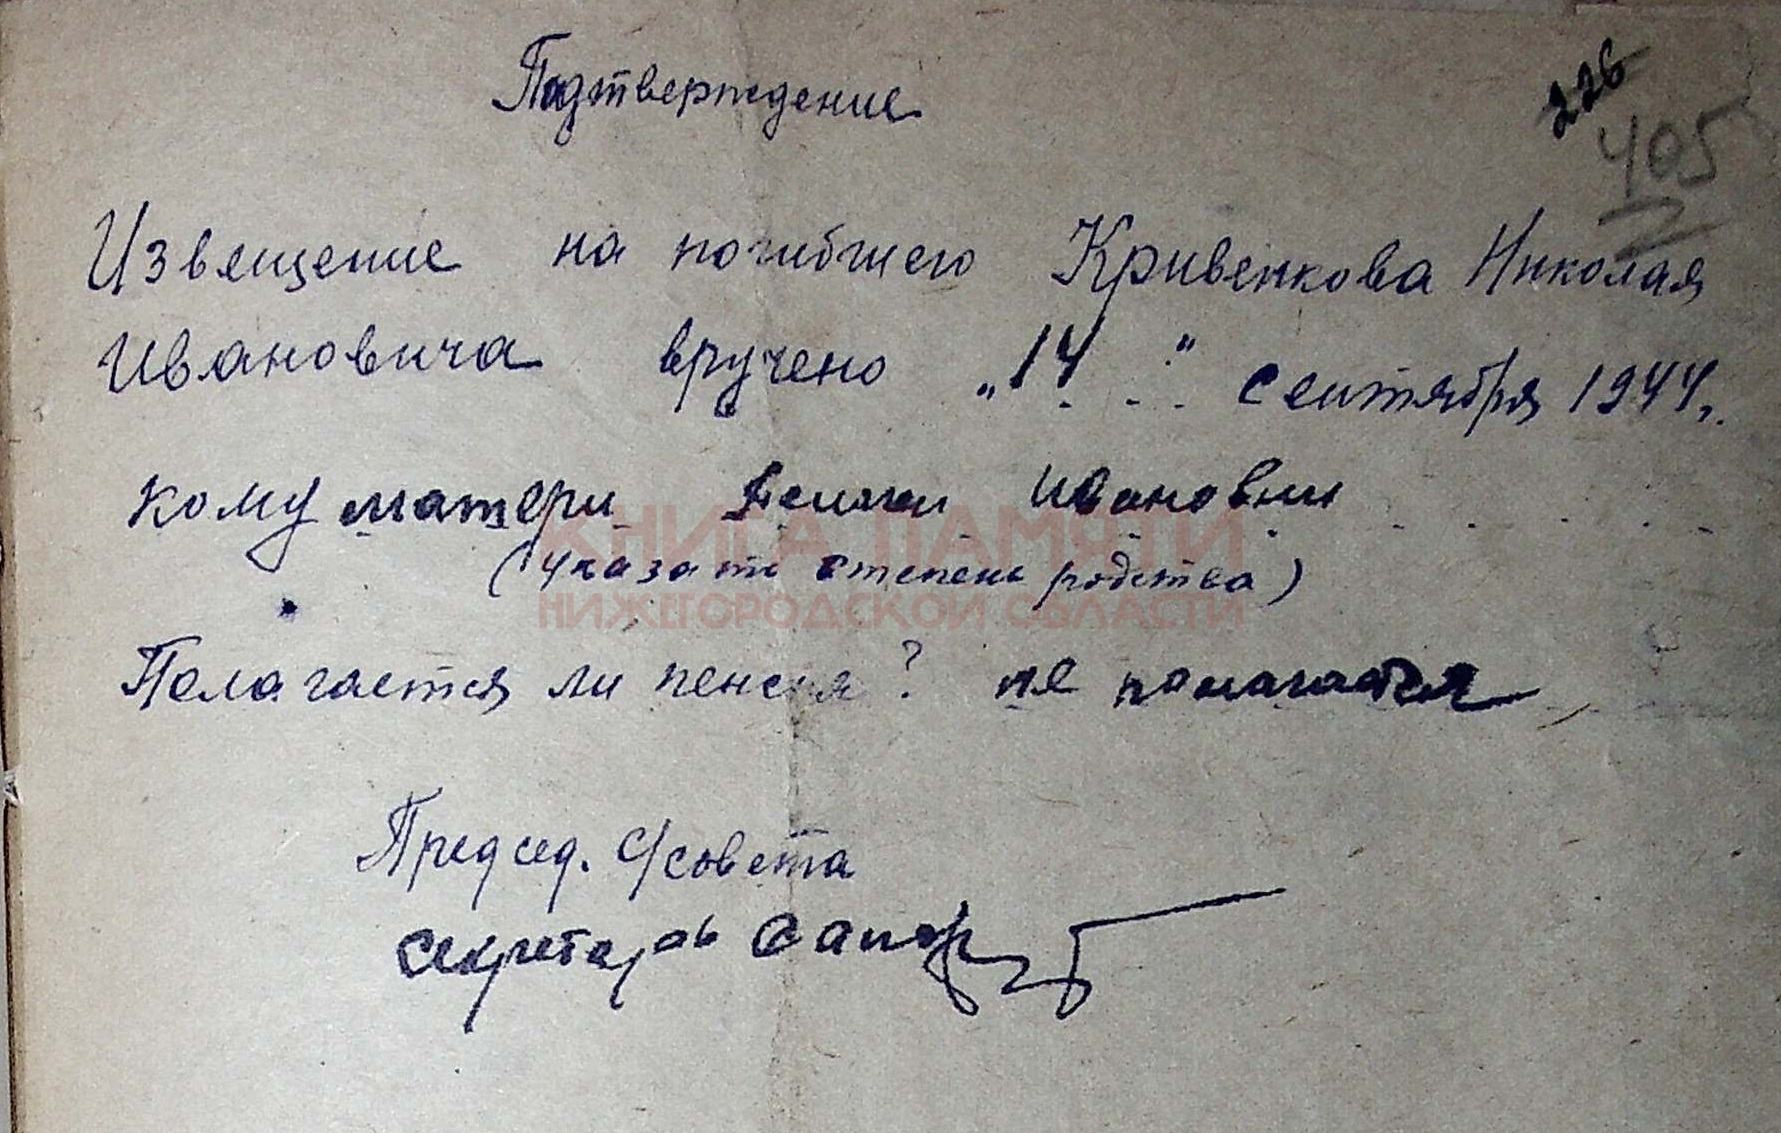 226
405
Подтверждение
Извещение на погибшего Кривенкова Николая
Ивановича вручено „14“ сентября 1944г.
кому матери Ивановны
(указать степень родства)
КНИГА ПАМЯТИ
НИЖЕГОРОДСКОЙ ОБЛАСТИ
Полагается ли пенсия? не полагается
Председ. с/совета
секретарь